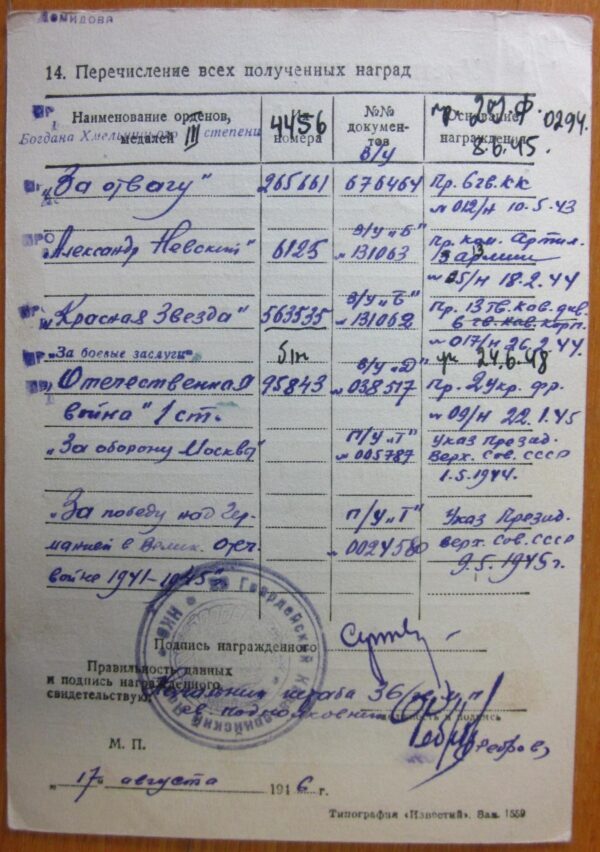 Демидова
14. Перечисление всех полученных наград
Наименование орденов, медалей
№№ номера
№№ документов
Основание награждения
Богдана Хмельницкого III степени
4456
пр. 201.ф. 0294.
8.6.45.
„За отвагу"
265661
в/у 676464
Пр. 6 гв. кк
№ 012/н 10.5.43
„Александр Невский"
6125
в/у „Б"
№ 131063
Пр. ком. Артил.
13 армии
№ 05/н 18.2.44
„Красная Звезда"
563535
в/у „Б"
№ 131062
Пр. 13 гв. кав. див.
6 гв. кав. корп.
№ 017/н 26.2.44.
„За боевые заслуги"
б/н
ук 24.6.48
„Отечественная война" 1 ст.
95843
в/у „Д"
№ 038517
Пр. 2 Укр. фр.
№ 09/н 22.1.45
„За оборону Москвы"
п/у „Т"
№ 005787
Указ Презид.
Верх. Сов. СССР
1.5.1944.
„За победу над Германией в Велик. отеч. войне 1941–1945"
п/у „Т"
№ 0024580
Указ Презид.
верх. Сов. СССР
9.5.1945г.
Подпись награжденного
Правильность данных
и подпись награжденного
свидетельствую:
Начальник штаба 36 гв.
гв. подполковник
должность и подпись
/Ребров/
М. П.
„17" августа 1946 г.
Типография «Известий». Зак. 1559